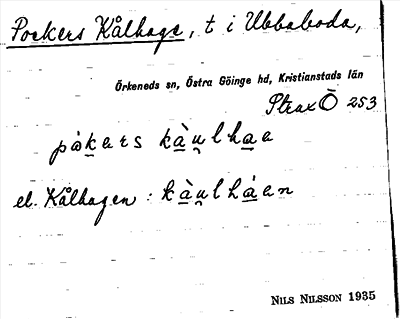 Pockers Kålhage, t i Ubbaboda,
Örkeneds sn, Östra Göinge hd, Kristianstads län
Strax Ö 253
pȧk̲ers kà̲u̯lha̲e
el. Kålhagen: kà̲u̯lhá̲en
NILS NILSSON 1935